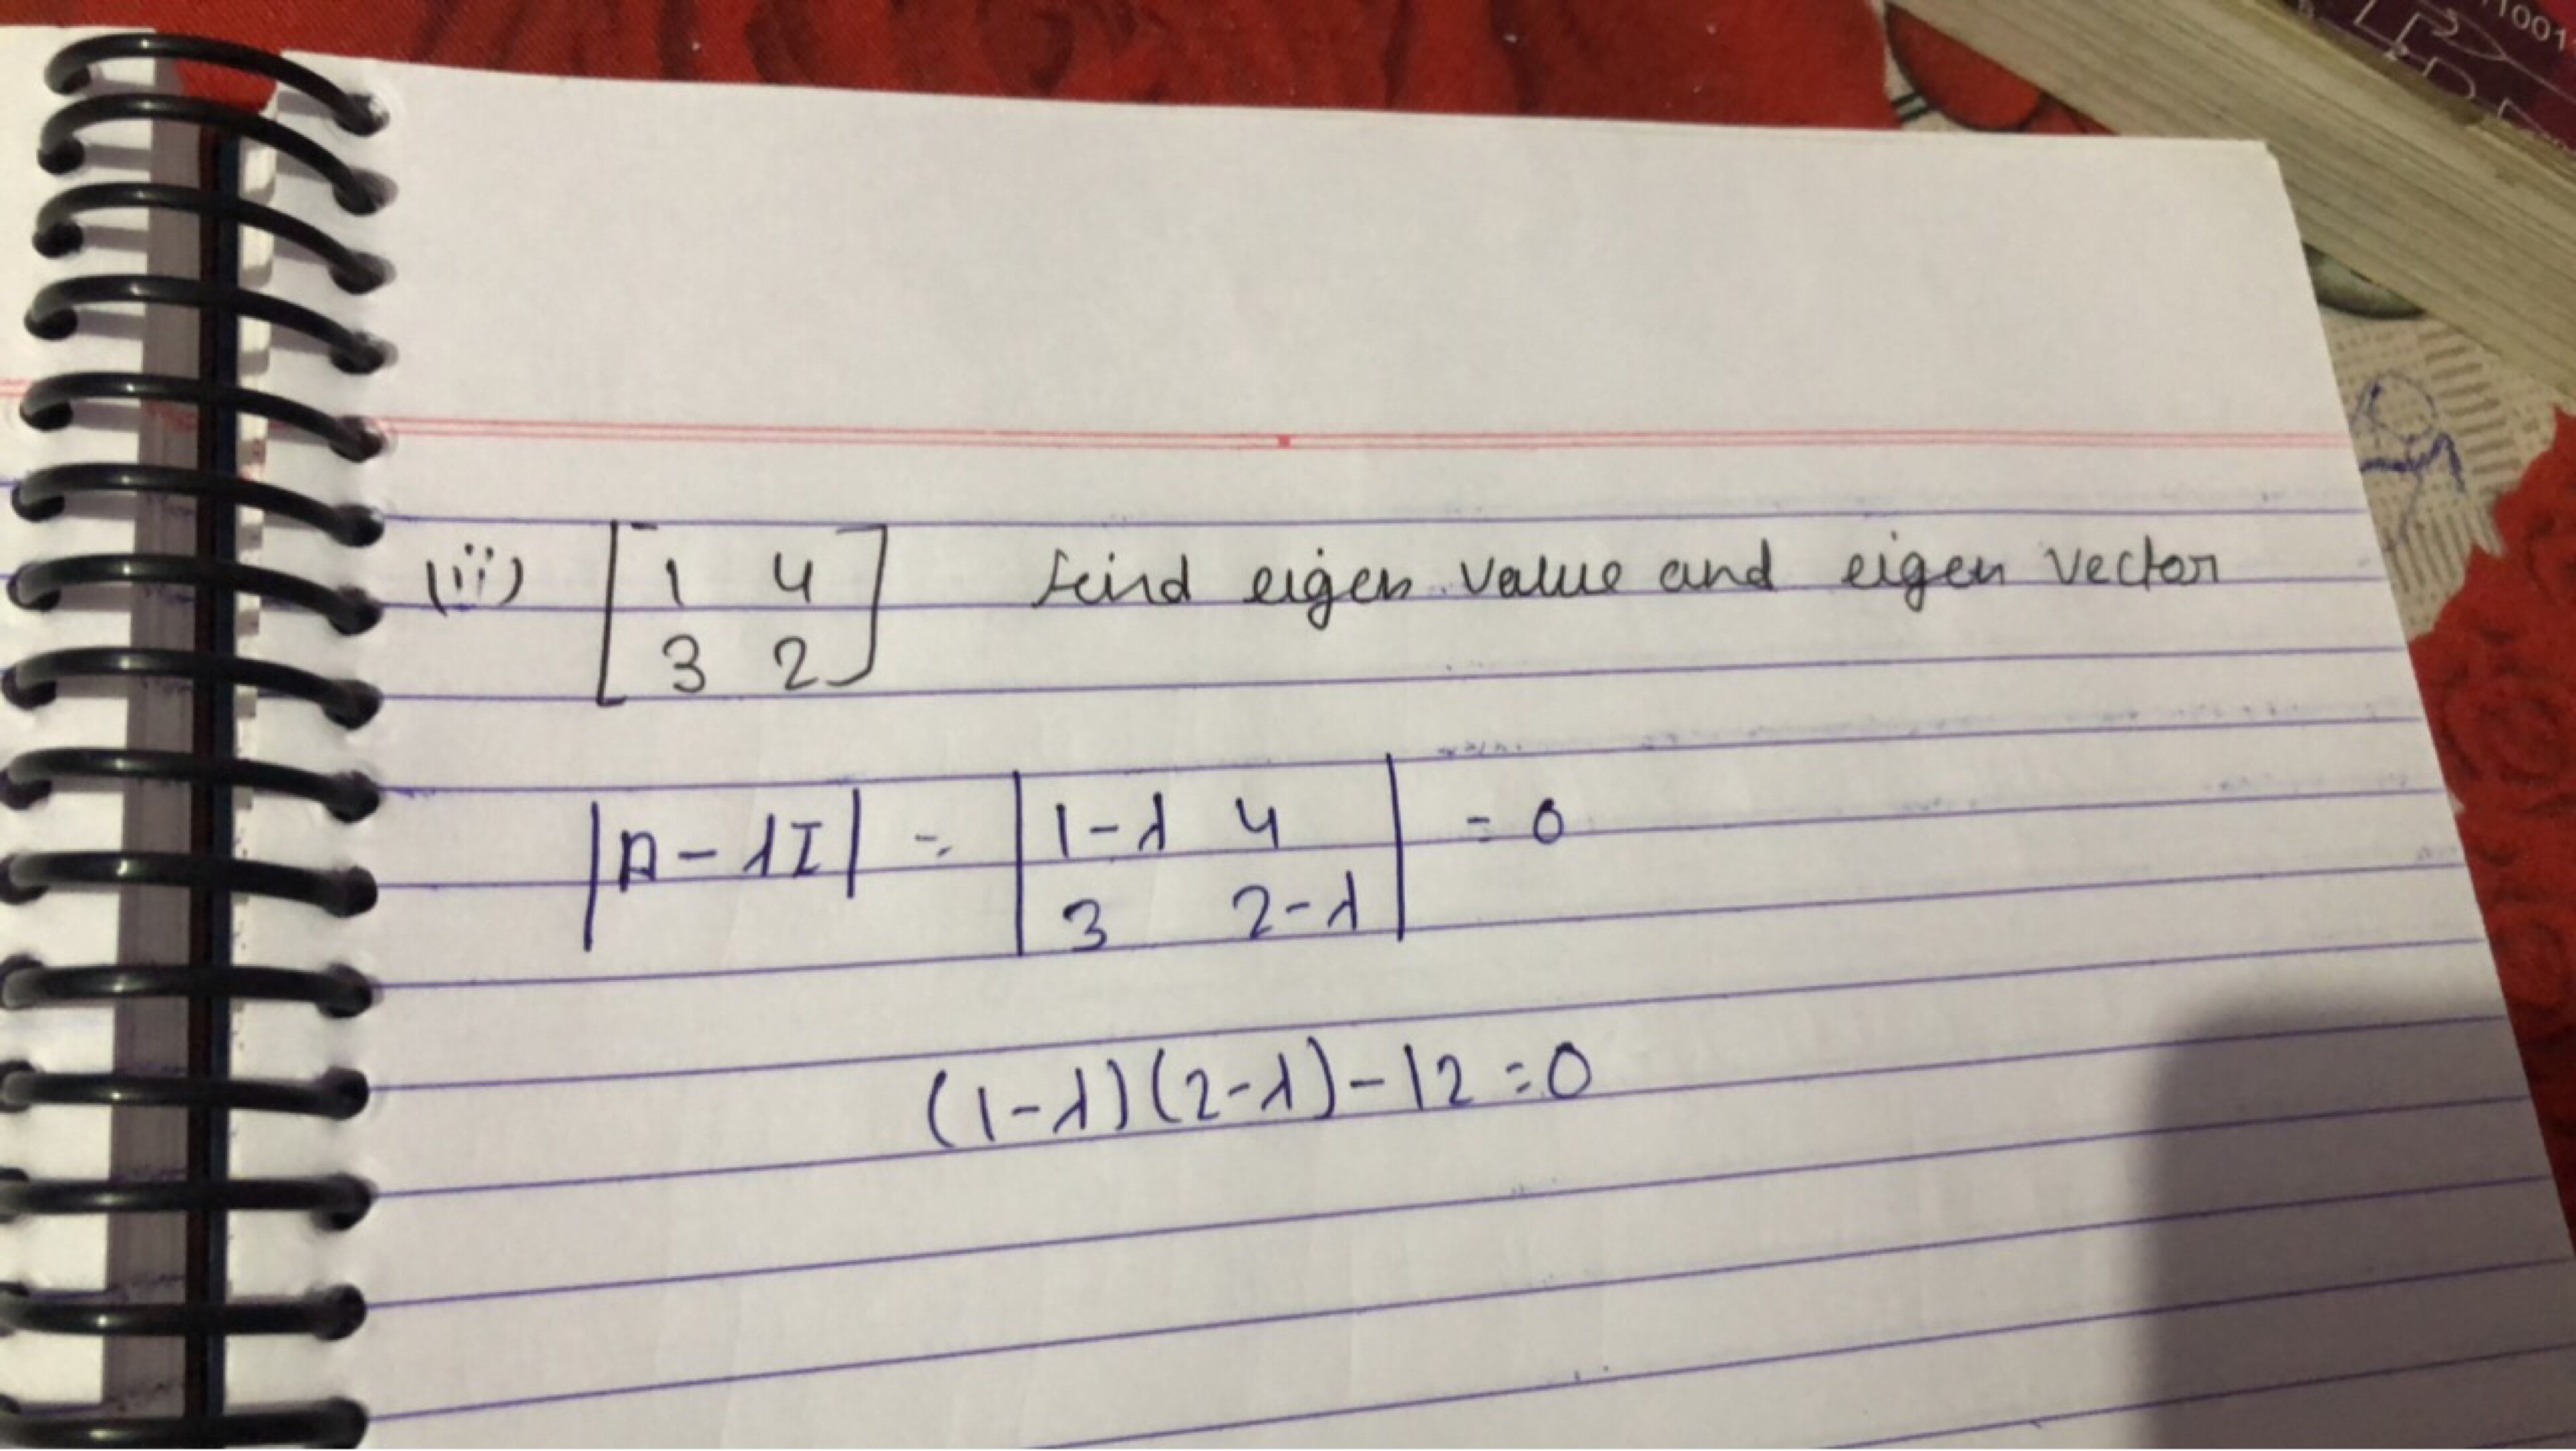 11001
(ii) [1 4 3 2] find eigen value and eigen vector
|A-λI| = |1-λ 4 3 2-λ| = 0
(1-λ)(2-λ)-12=0